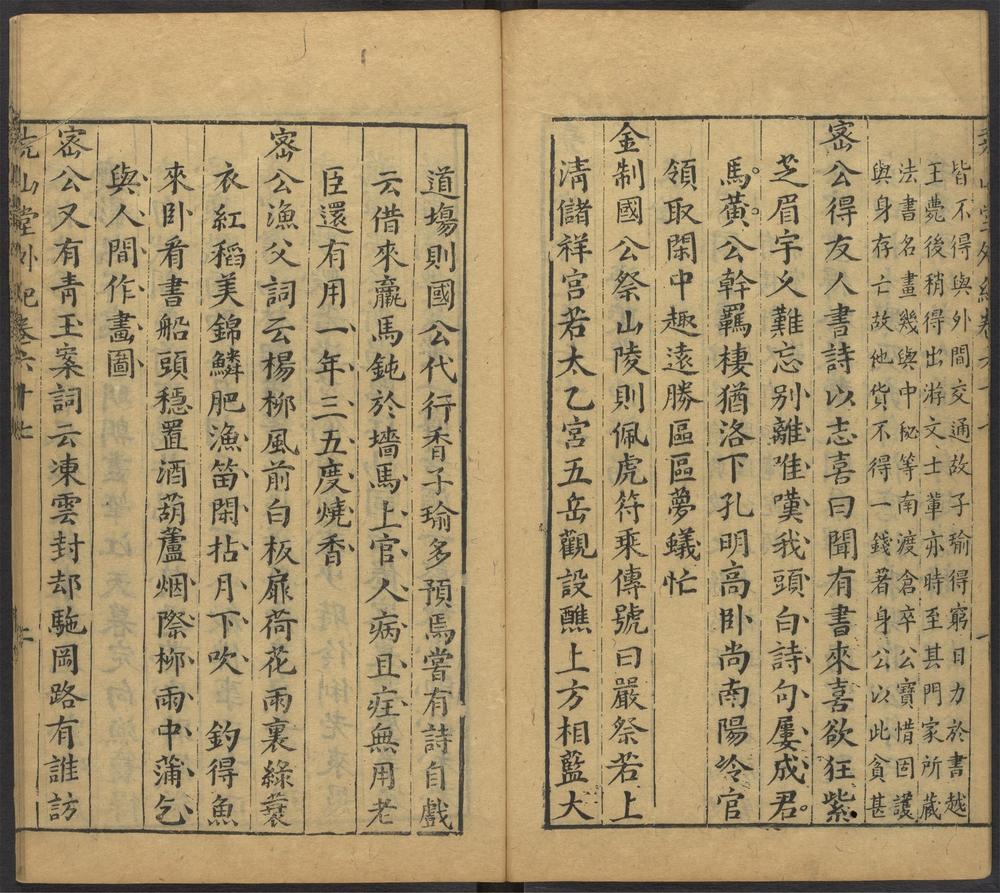 皆不得與外間交通故子瑜得窮日力於書越
王薨後稍得出游文士輩亦時至其門家所藏
法書名畫幾與中秘等南渡倉卒公寶惜固護
與身存亡故他貨不得一錢著身公以此貧甚
宻公得友人書詩以志喜曰聞有書來喜欲狂紫
芝眉宇久難忘别離唯嘆我頭白詩句屢成君
馬黃公幹羈棲猶洛下孔明高卧尚南陽冷官
領取閑中趣遠勝區區夢蟻忙
金制國公祭山陵則佩虎符乘傳號曰嚴祭若上
清儲祥宮若太乙宮五岳觀設醮上方相藍大
道塲則國公代行香子瑜多預焉嘗有詩自戲
云借來羸馬鈍於墻馬上官人病且尫無用老
臣還有用一年三五度燒香
宻公漁父詞云楊柳風前白板扉荷花雨裏綠蓑
衣紅稻美錦鱗肥漁笛閑拈月下吹 釣得魚
來卧看書船頭穩置酒葫蘆烟際柳雨中蒲乞
與人間作畵圖
宻公又有青玉案詞云凍雲封却駞岡路有誰訪
堯山堂外紀卷六十七